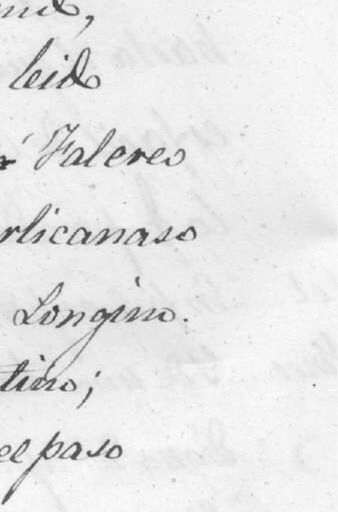 leido
Falereo
rlicanaso
Longino.
tino;
el paso